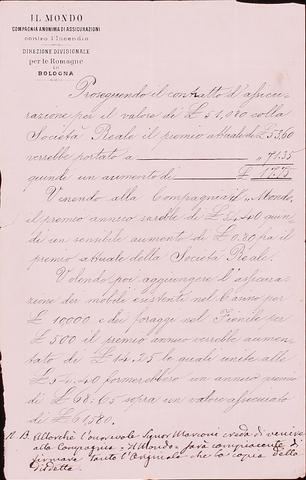 IL MONDO
COMPAGNIA ANONIMA DI ASSICURAZIONI
contro l'Incendio
DIREZIONE DIVISIONALE
per le Romagne
in
BOLOGNA
Proseguendo il contratto d'assicu-
razione per il valore di £ 51,080 colla
Società Reale il premio attuale di £ 53,60
verrebbe portato a " 71.35
quindi un aumento di £ 17.75
Venendo alla Compagnia il "Mondo,
il premio annuo sarebbe di £ 54.40 quin-
di un sensibile aumento di £ 0.80 fra il
premio attuale della Società Reale.
Volendo poi aggiungere l'assicura-
zione dei mobili esistenti nel Casino per
£ 10000 e dei foraggi nel Fienile per
£ 500 il premio annuo verrebbe aumen-
tato di £ 14.25 le quali unite alle
£ 54.40 formerebbero un annuo premio
di £ 68.65 sopra un valore assicurato
di £ 61,580.
N. B. Allorchè l'onorevole Signor Marconi creda di venire
alla Compagnia "Il Mondo" sarà compiacente di
firmare tanto l'Originale che la copia della
Disdetta